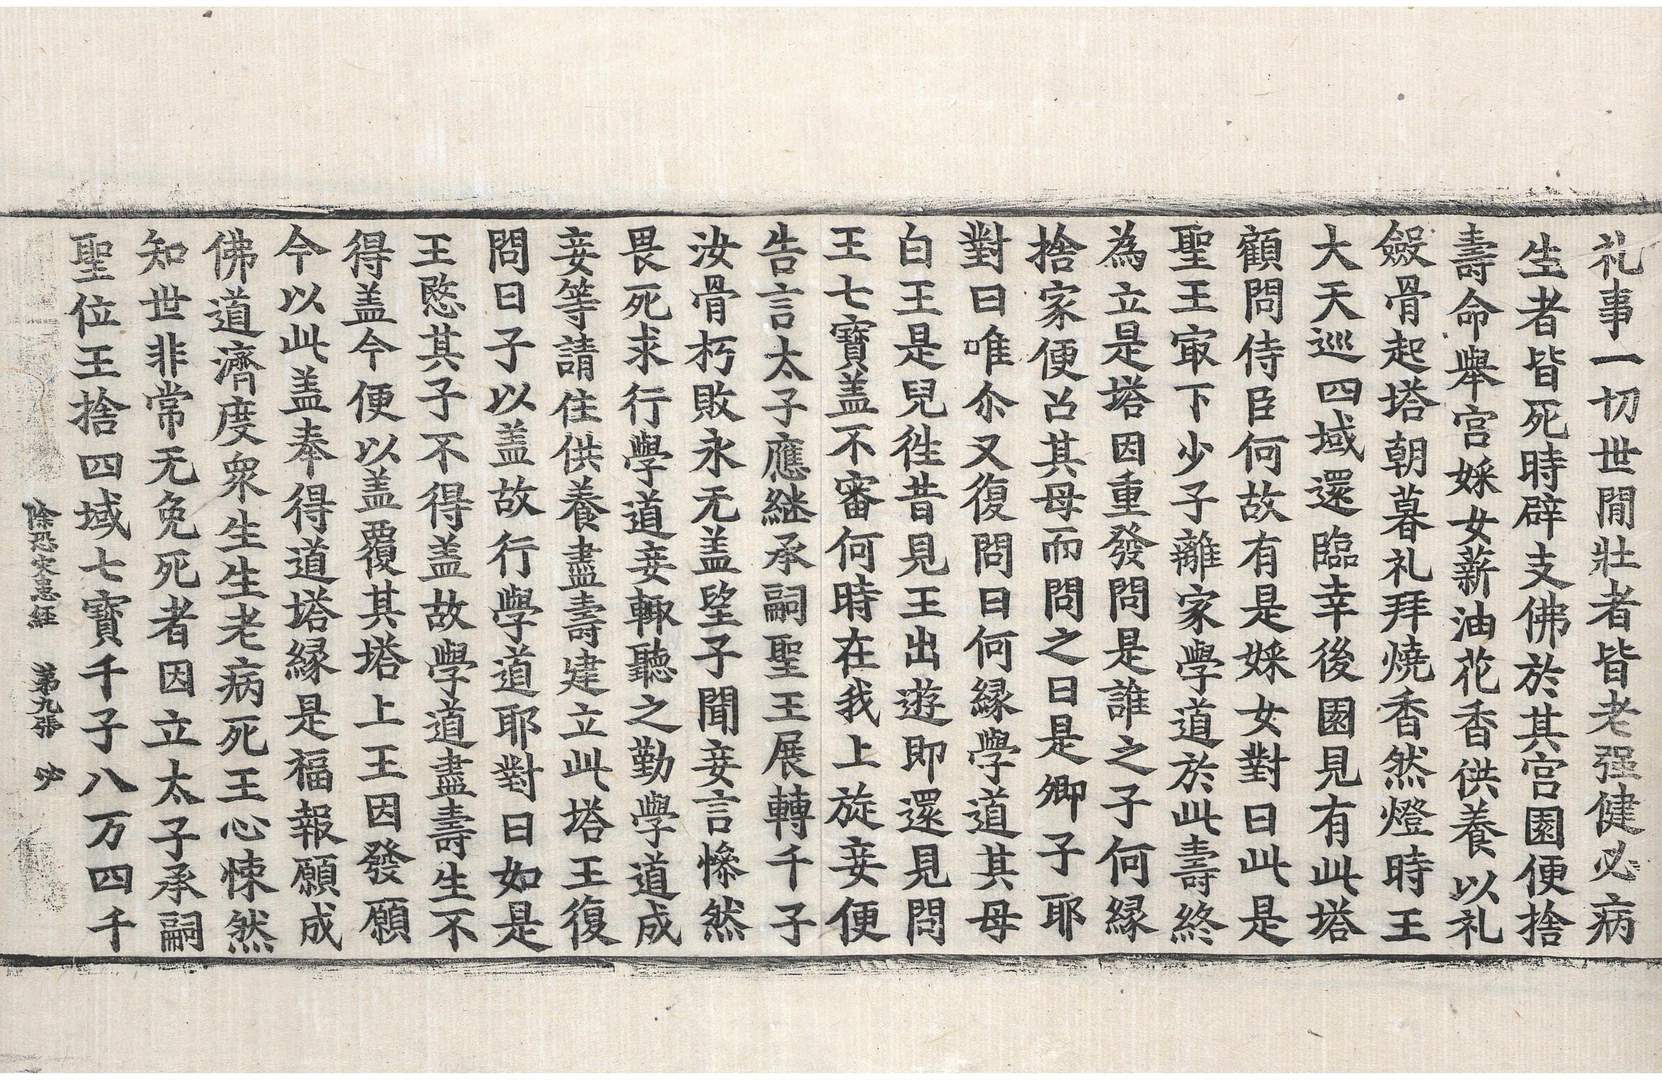 礼事一切世間壯者皆老强健必病
生者皆死時辟支佛於其宮園便捨
壽命舉宮婇女薪油花香供養以礼
斂骨起塔朝暮礼拜燒香然燈時王
大天巡四域還臨幸後園見有此塔
顧問侍臣何故有是婇女對曰此是
聖王冣下少子離家學道於此壽終
為立是塔因重發問是誰之子何緣
捨家便召其母而問之曰是卿子耶
對曰唯尒又復問曰何緣學道其母
白王是兒徃昔見王出遊即還見問
王七寶盖不審何時在我上旋妾便
告言太子應継承嗣聖王展轉千子
汝骨朽敗永无盖望子聞妾言慘然
畏死求行學道妾輙聽之勤學道成
妾等請住供養盡壽建立此塔王復
問曰子以盖故行學道耶對曰如是
王愍其子不得盖故學道盡壽生不
得盖今便以盖覆其塔上王因發願
今以此盖奉得道塔緣是福報願成
佛道濟度衆生生老病死王心悚然
知世非常无免死者因立太子承嗣
聖位王捨四域七寶千子八万四千
除恐灾患経　第九張